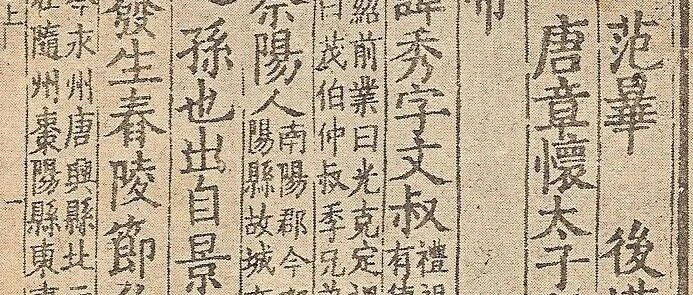 范曅 後
唐章懷太子
秀字文叔 禮
有
紹前業曰光克定
曰茂伯仲叔季兄
陽人 南陽郡今
陽縣故城
孫也出自景
發生舂陵節
永州唐興縣北
隨州棗陽縣東
上 一